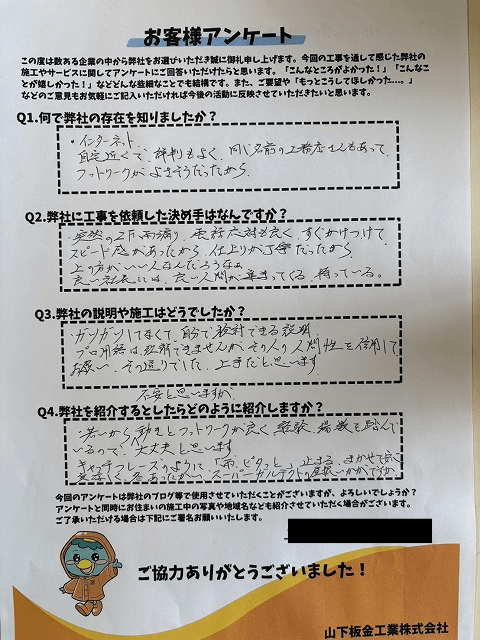 お客様アンケート
この度は数ある企業の中から弊社をお選びいただき誠に御礼申し上げます。今回の工事を通して感じた弊社の
施工やサービスに関してアンケートにご回答いただけたらと思います。「こんなところがよかった!」「こんなこ
とが嬉しかった!」などどんな些細なことでも結構です。また、ご要望や「もっとこうしてほしかった…。」
などのご意見もお気軽にご記入いただければ今後の活動に反映させていただきたいと思います。
Q1.何で弊社の存在を知りましたか?
・インターネット
自宅近くで、評判もよく、同じ名前の工務店さんもあって、
フットワークがよさそうだったから、
Q2.弊社に工事を依頼した決め手はなんですか?
突然の2F雨漏り、電話応対も良く、すぐかけつけて、
スピード感があったから、仕上りが丁寧だったから、
上の方がいい人なんだろうなぁ
良い社長には、良い人間が集まってくる、持っている。
Q3.弊社の説明や施工はどうでしたか?
ガツガツしてなくて、自分で検討できる説明、
プロ用語は理解できませんが、その人の人間性を信用して
お願い、その通りでした、上手だと思います
不安と思いますが、
Q4.弊社を紹介するとしたらどのように紹介しますか?
若いから動きとフットワークが良く 経験、場数も踏んで
いるので、大丈夫と思います
キャッチフレーズのように「雨、ピタッと、止まる、まかせて安心
夏涼しく、冬あったかい、スーパーガルテクトの屋根いかがですか
今回のアンケートは弊社のブログ等で使用させていただくことがございますが、よろしいでしょうか?
アンケートと同時にお住まいの施工中の写真や地域名なども紹介させていただく場合がございます。
ご了承いただける場合は下記にご署名お願いいたします。
ご協力ありがとうございました!
山下板金工業株式会社